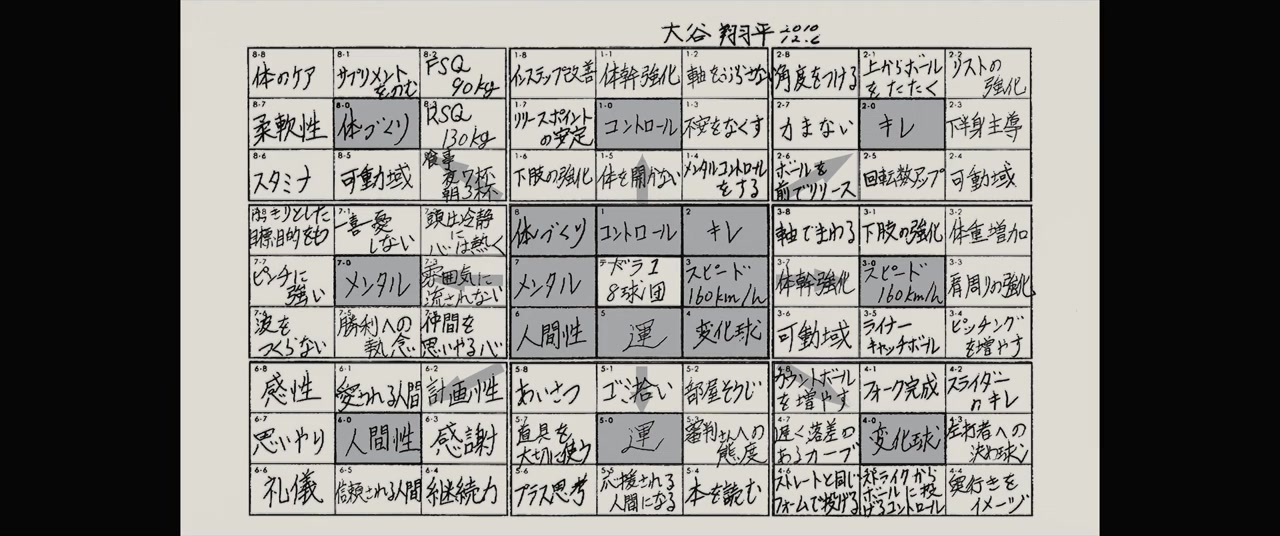 大谷 翔平 2010 12.6
8-8 体のケア
8-1 サプリメントをのむ
8-2 FSQ 90kg
8-7 柔軟性
8-0 体づくり
8-3 RSQ 130kg
8-6 スタミナ
8-5 可動域
食事 夜7杯 朝3杯
1-8 インステップ改善
1-1 体幹強化
1-2 軸をぶらさない
1-7 リリースポイントの安定
1-0 コントロール
1-3 不安をなくす
1-6 下肢の強化
1-5 体を開かない
1-4 メンタルコントロールをする
2-8 角度をつける
2-1 上からボールをたたく
2-2 リストの強化
2-7 力まない
2-0 キレ
2-3 下半身主導
2-6 ボールを前でリリース
2-5 回転数アップ
2-4 可動域
はっきりとした目標、目的をもつ
7-1 一喜一憂しない
頭は冷静に心は熱く
7-7 ピンチに強い
7-0 メンタル
7-3 雰囲気に流されない
7-6 波をつくらない
7-5 勝利への執念
7-4 仲間を思いやる心
8 体づくり
1 コントロール
2 キレ
7 メンタル
ドラ1 8球団
3 スピード 160km/h
6 人間性
5 運
4 変化球
3-8 軸でまわる
3-1 下肢の強化
3-2 体重増加
3-7 体幹強化
3-0 スピード 160km/h
3-3 肩周りの強化
3-6 可動域
3-5 ライナーキャッチボール
3-4 ピッチングを増やす
6-8 感性
6-1 愛される人間
6-2 計画性
6-7 思いやり
6-0 人間性
6-3 感謝
6-6 礼儀
6-5 信頼される人間
6-4 継続力
5-8 あいさつ
5-1 ゴミ拾い
5-2 部屋そうじ
5-7 道具を大切に使う
5-0 運
5-3 審判さんへの態度
5-6 プラス思考
5-5 応援される人間になる
5-4 本を読む
4-8 カウントボールを増やす
4-1 フォーク完成
4-2 スライダーのキレ
4-7 遅く落差のあるカーブ
4-0 変化球
4-3 左打者への決め球
4-6 ストレートと同じフォームで投げる
4-5 ストライクからボールに投げるコントロール
4-4 奥行きをイメージ